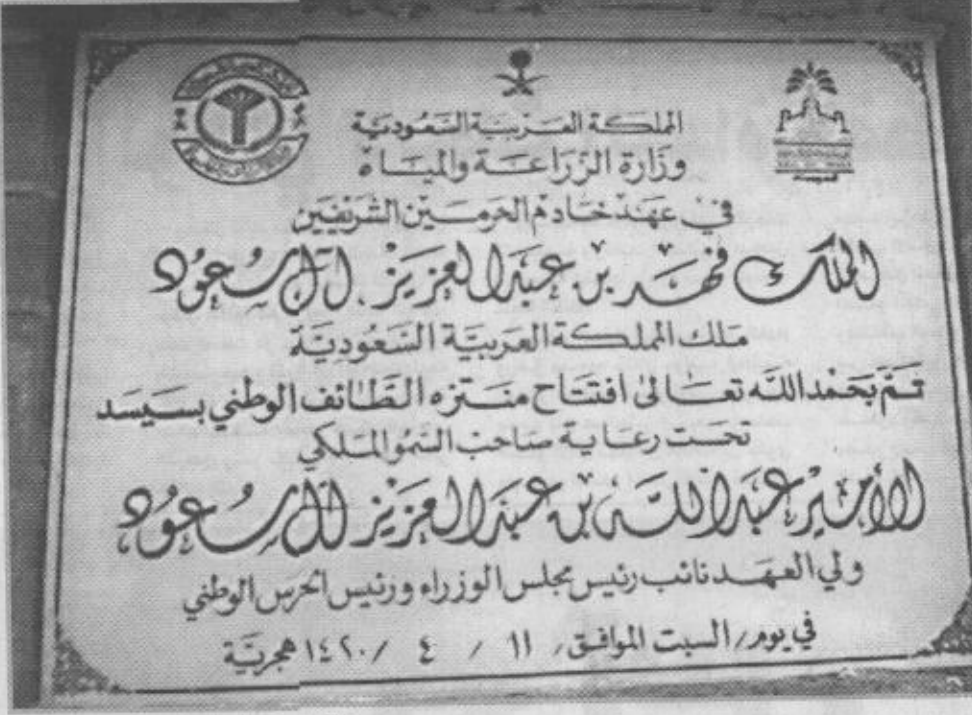 المملكة العربية السعودية
وزارة الزراعة والمياه
في عهد خادم الحرمين الشريفين
الملك فهد بن عبدالعزيز آل سعود
ملك المملكة العربية السعودية
تم بحمد الله تعالى افتتاح منتزه الطائف الوطني بسيسد
تحت رعاية صاحب السمو الملكي
الأمير عبدالله بن عبدالعزيز آل سعود
ولي العهد نائب رئيس مجلس الوزراء ورئيس الحرس الوطني
في يوم/ السبت الموافق/ ١١ / ٤ / ١٤٢٠ هجرية